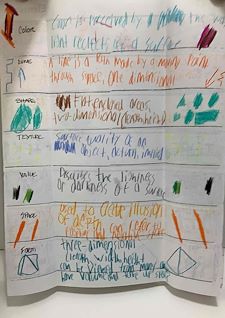 Color
Color is perceived by a the way
light reflects off a surface
Line
A line is a path made by a moving point
through space, one dimensional
Shape
Flat enclosed areas,
two-dimensional
Texture
Surface quality of an
object, actual, implied
Value
Describes the lightness
or darkness of a surface
Space
used to create illusion
of depth
Form
three-dimensional
length, width, height
can be viewed from many
have volume and take up space